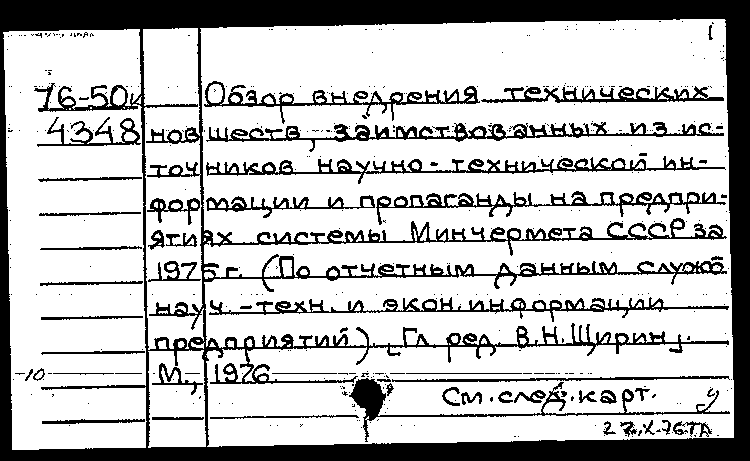 1
76-50к Обзор внедрения технических
4348 новшеств, заимствованных из ис-
точников научно-технической ин-
формации и пропаганды на предпри-
ятиях системы Минчермета СССР за
1975 г. (По отчетным данным служб
науч.-техн. и экон. информации
предприятий). [Гл. ред. В.Н. Щирин].
-10 М., 1976.
См. след. карт.